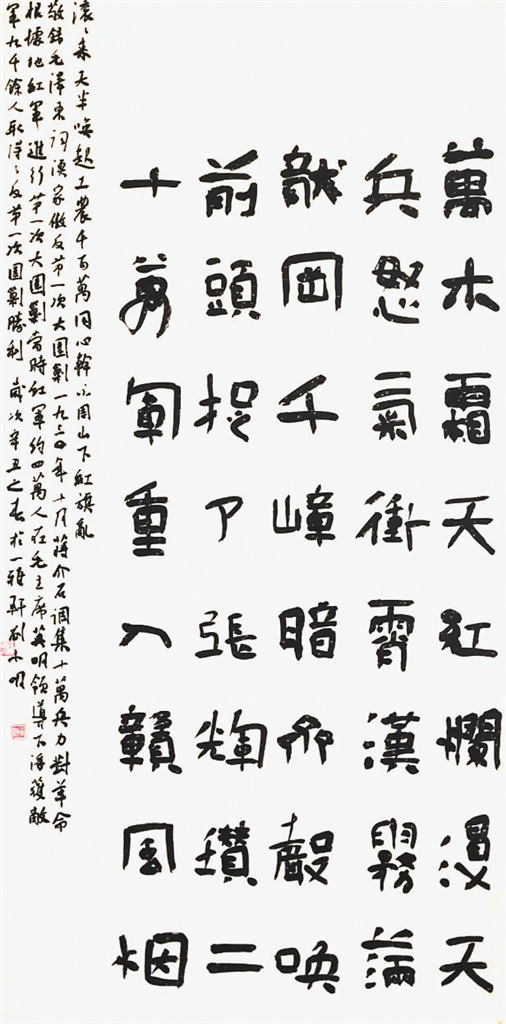 萬木霜天紅爛漫天
兵怒氣衝霄漢霧滿
龍岡千嶂暗齊聲喚
前頭捉了張輝瓚二
十萬軍重入贛風烟
滾〻來天半喚起工農千百萬同心幹不周山下紅旗亂
敬錄毛澤東詞漁家傲反第一次大圍剿一九三〇年十月蔣介石調集十萬兵力對革命
根據地紅軍進行第一次大圍剿當時紅軍約四萬人在毛主席英明領導下俘獲敵
軍九千餘人取得了反第一次圍剿勝利 歲次辛丑之春於一雅軒劉小明